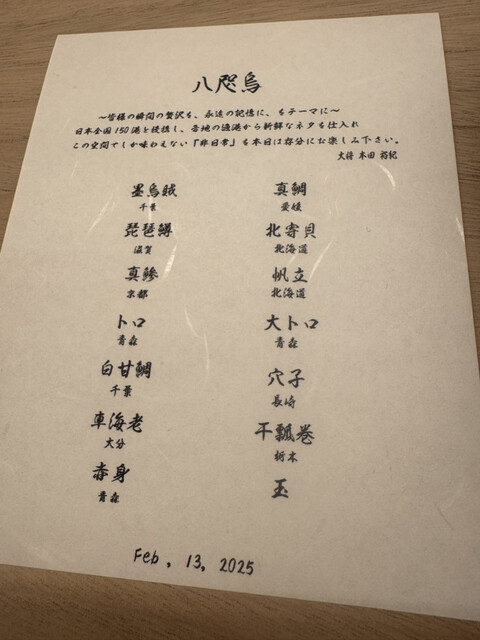 八咫烏
～皆様の瞬間の贅沢を、永遠の記憶に、をテーマに～
日本全国150港と提携し、各地の漁港から新鮮なネタを仕入れ
この空間でしか味わえない「非日常」を本日は存分にお楽しみ下さい。
大将 本田 裕紀
墨烏賊
千葉
琵琶鱒
滋賀
真鯵
京都
トロ
青森
白甘鯛
千葉
車海老
大分
赤身
青森
真鯛
愛媛
北寄貝
北海道
帆立
北海道
大トロ
青森
穴子
長崎
干瓢巻
栃木
玉
Feb, 13, 2025